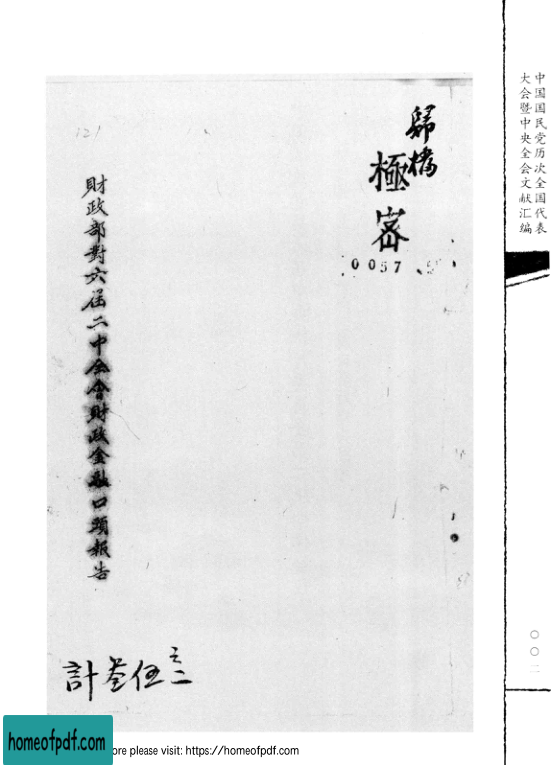 中国国民党历次全国代表
大会暨中央全会文献汇编
歸檔
極密
0057
財政部對六届二中全會財政金融口頭報告
121
〇〇二
homeofpdf.com
ore please visit: https://homeofpdf.com